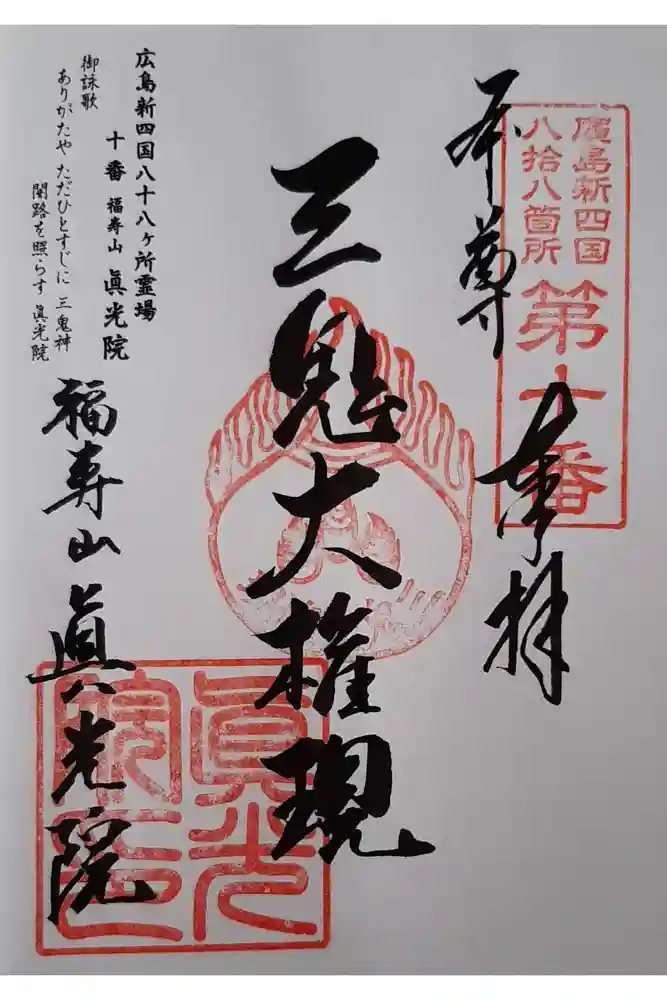 廣島新四国
八拾八箇所
第十番
本尊
奉拝
三鬼大権現
広島新四国八十八ヶ所霊場
十番 福寿山 眞光院
御詠歌
ありがたや ただひとすじに 三鬼神
闇路を照らす 眞光院
福寿山 眞光院
眞光
院印